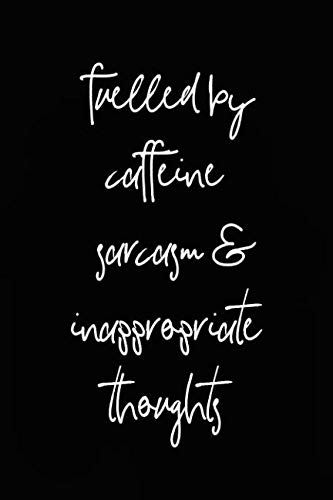 fuelled by
caffeine
sarcasm &
inappropriate
thoughts